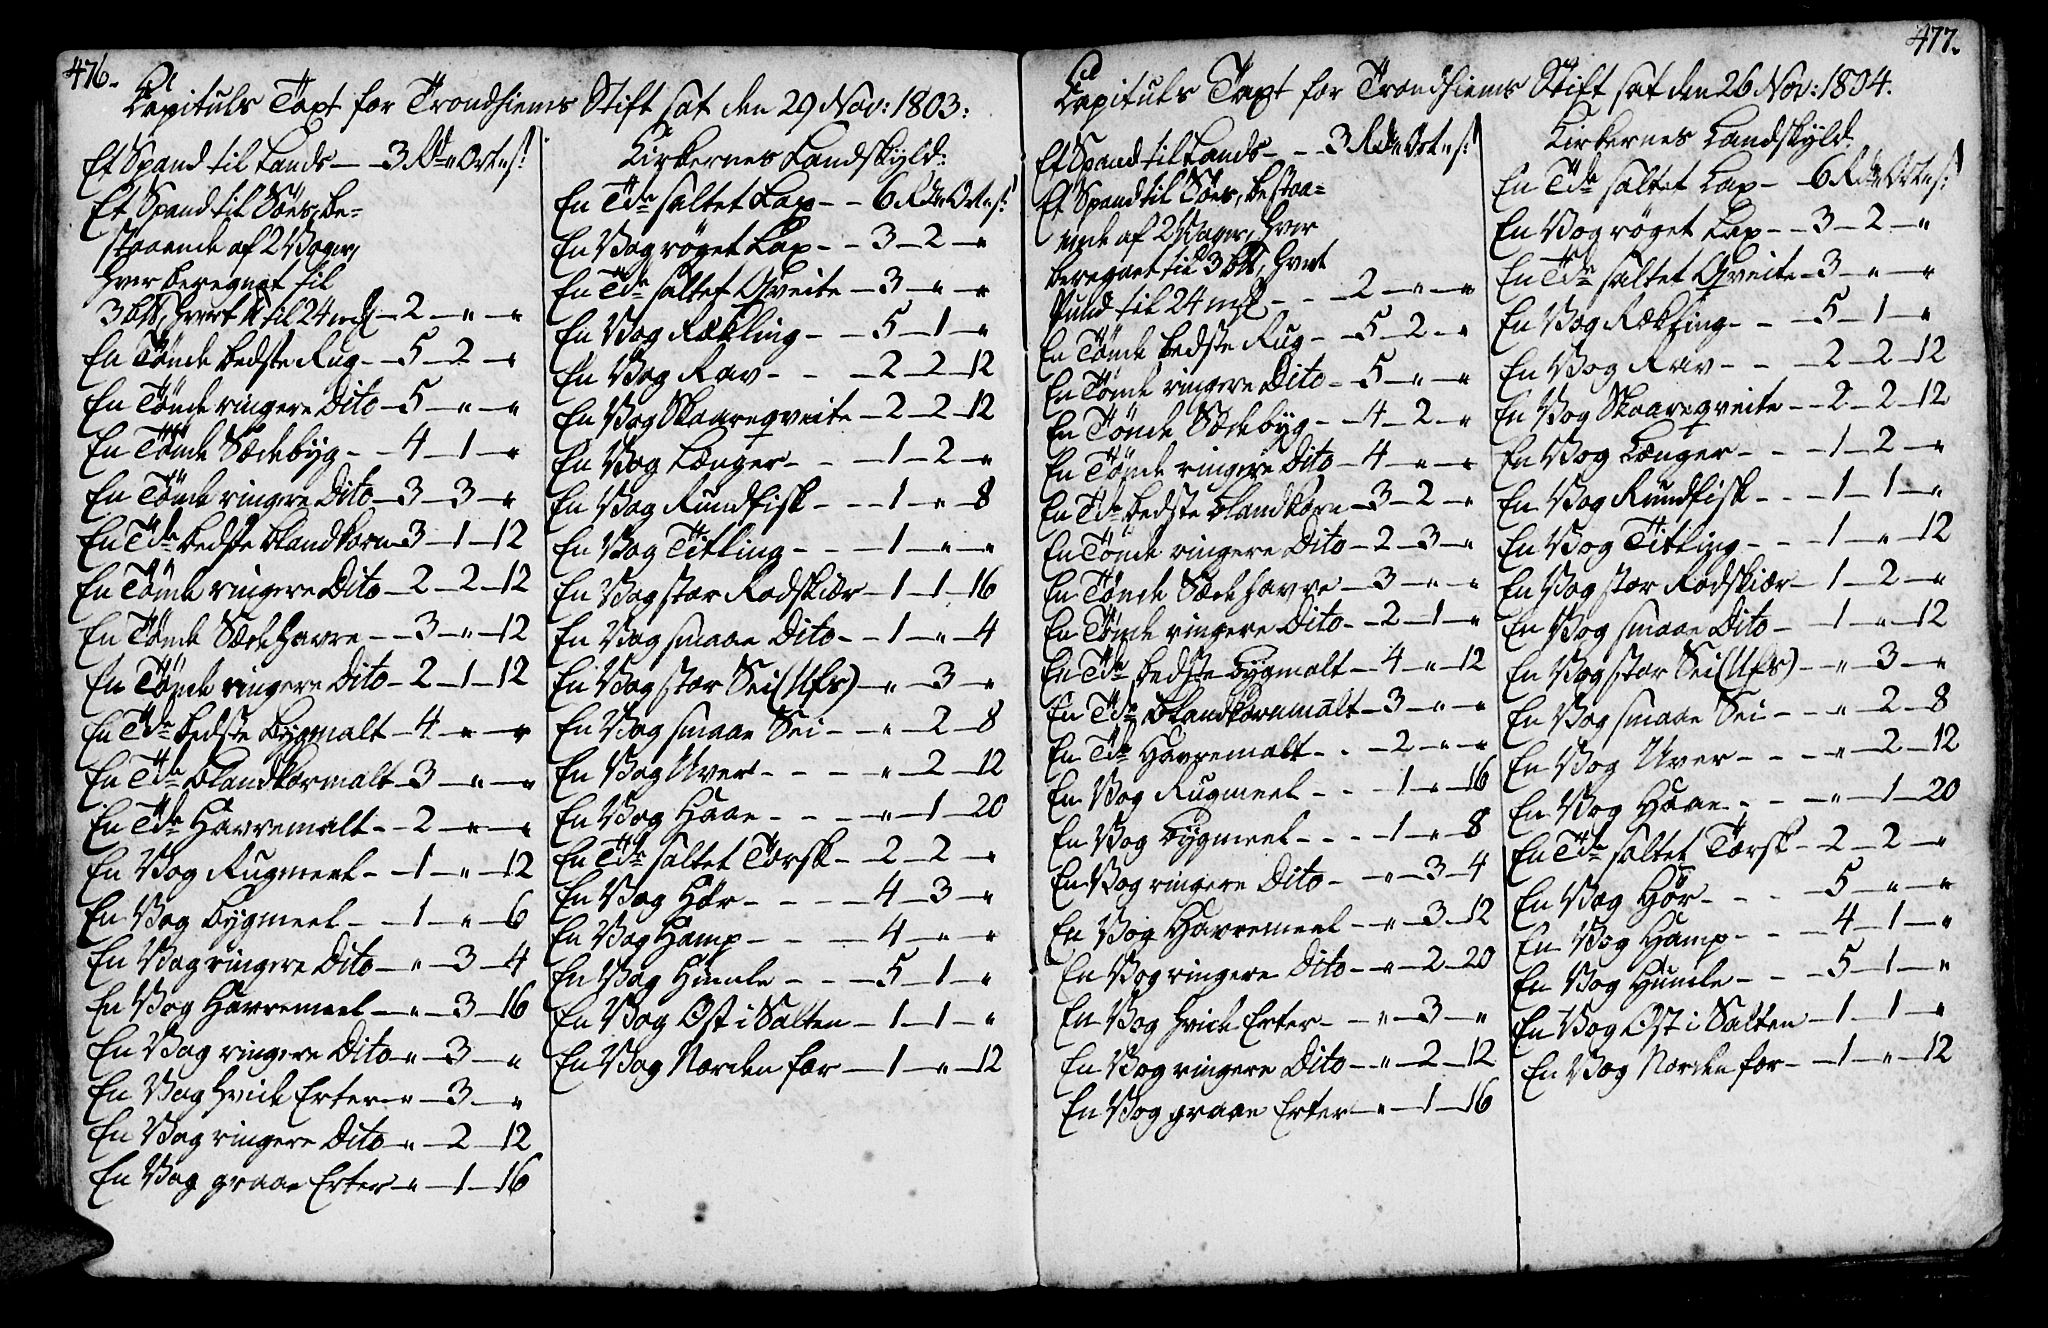 476.
Capituls Taxt for Trondhiems Stift sat den 29 Nov: 1803:
Et Spand til Lands – 3 Rd " Ort " s:
Et Spand til Söes, be-
staaende af 2 Voger,
hver beregnet til
3 b℔, hvert ℔ til 24 mk – 2 – " – "
En Tönde bedste Rug – 5 – 2 – "
En Tönde ringere Dito – 5 – " – "
En Tönde Sædebyg – 4 – 1 – "
En Tönde ringere Dito – 3 – 3 – "
En Tde bedste blandkorn – 3 – 1 – 12
En Tönde ringere Dito – 2 – 2 – 12
En Tönde Sædehavre – 3 – " – 12
En Tönde ringere Dito – 2 – 1 – 12
En Tde bedste bygmalt – 4 – " – "
En Tde blandkormalt – 3 – " – "
En Tde Havremalt – 2 – " – "
En Vog Rugmeel – 1 – " – 12
En Vog bygmeel – 1 – " – 6
En Vog ringere Dito – " – 3 – 4
En Vog Havremeel – " – 3 – 16
En Vog ringere Dito – " – 3 – "
En Vog hvide Erter – " – 3 – "
En Vog ringere Dito – " – 2 – 12
En Vog graae Erter – " – 1 – 16
Kirkernes Landskyld:
En Tde saltet Lax – 6 Rd " Ort " s:
En Vog röget Lax – 3 – 2 – "
En Tde saltet Qveite – 3 – " – "
En Vog Rækling – 5 – 1 – "
En Vog Rav – 2 – 2 – 12
En Vog Skaareqveite – 2 – 2 – 12
En Vog Længer – 1 – 2 – "
En Vog Rundfisk – 1 – " – 8
En Vog Titling – 1 – " – "
En Vog stor Rodskiær – 1 – 1 – 16
En Vog smaae Dito – 1 – " – 4
En Vog stor Sei (Ufs) – " – 3 – "
En Vog smaae Sei – " – 2 – 8
En Vog Uver – " – 2 – 12
En Vog Haae – " – 1 – 20
En Tde saltet Torsk – 2 – 2 – "
En Vog Hör – 4 – 3 – "
En Vog Hamp – 4 – " – "
En Vog Humle – 5 – 1 – "
En Vog Ost i Salten – 1 – 1 – "
En Vog Norden for – 1 – " – 12
477.
Capituls Taxt for Trondhiems Stift sat den 26 Nov: 1804.
Et Spand til Lands – 3 Rd " Ort " s:
Et Spand til Söes, bestaa=
ende af 2 Voger, hver
beregnet til 3 b℔, hvert
Pund til 24 mk – 2 – " – "
En Tönde bedste Rug – 5 – 2 – "
En Tönde ringere Dito – 5 – " – "
En Tönde Sædebyg – 4 – 2 – "
En Tönde ringere Dito – 4 – " – "
En Tde bedste blandkorn – 3 – 2 – "
En Tönde ringere Dito – 2 – 3 – "
En Tönde Sædehavre – 3 – " – "
En Tönde ringere Dito – 2 – 1 – "
En Tde bedste bygmalt – 4 – " – 12
En Tde blandkornmalt – 3 – " – "
En Tde Havremalt – 2 – " – "
En Vog Rugmeel – 1 – " – 16
En Vog bygmeel – 1 – " – 8
En Vog ringere Dito – " – 3 – 4
En Vog Havremeel – " – 3 – 12
En Vog ringere Dito – " – 2 – 20
En Vog hvide Erter – " – 3 – "
En Vog ringere Dito – " – 2 – 12
En Vog graae Erter – " – 1 – 16
Kirkernes Landskyld:
En Tde saltet Lax – 6 Rd " Ort " s:
En Vog röget Lax – 3 – 2 – "
En Tde saltet Qveite – 3 – " – "
En Vog Rækling – 5 – 1 – "
En Vog Rav – 2 – 2 – 12
En Vog Skaareqveite – 2 – 2 – 12
En Vog Længer – 1 – 2 – "
En Vog Rundfisk – 1 – 1 – "
En Vog Titling – 1 – " – 12
En Vog stor Rodskiær – 1 – 2 – "
En Vog smaae Dito – 1 – " – 12
En Vog stor Sei (Ufs) – " – 3 – "
En Vog smaae Sei – " – 2 – 8
En Vog Uver – " – 2 – 12
En Vog Haae – " – 1 – 20
En Tde saltet Torsk – 2 – 2 – "
En Vog Hör – 5 – " – "
En Vog Hamp – 4 – 1 – "
En Vog Humle – 5 – 1 – "
En Vog Ost i Salten – 1 – 1 – "
En Vog Norden for – 1 – " – 12